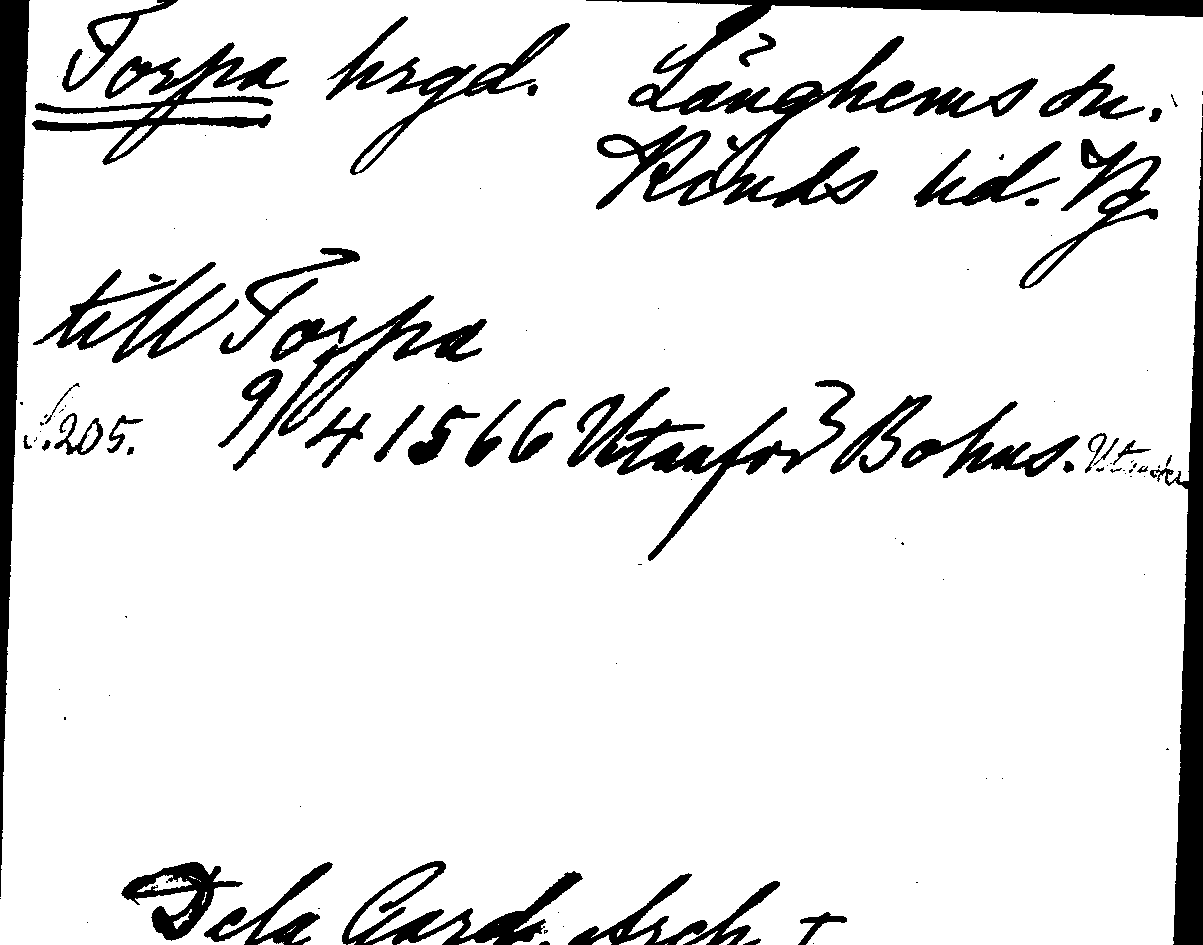 Torpa hrgd. Länghems sn.
Kinds hd. Vg.
till Torpa
S. 205. 9/4 1566 Utanför Bohus.
De la Gard. Arch I